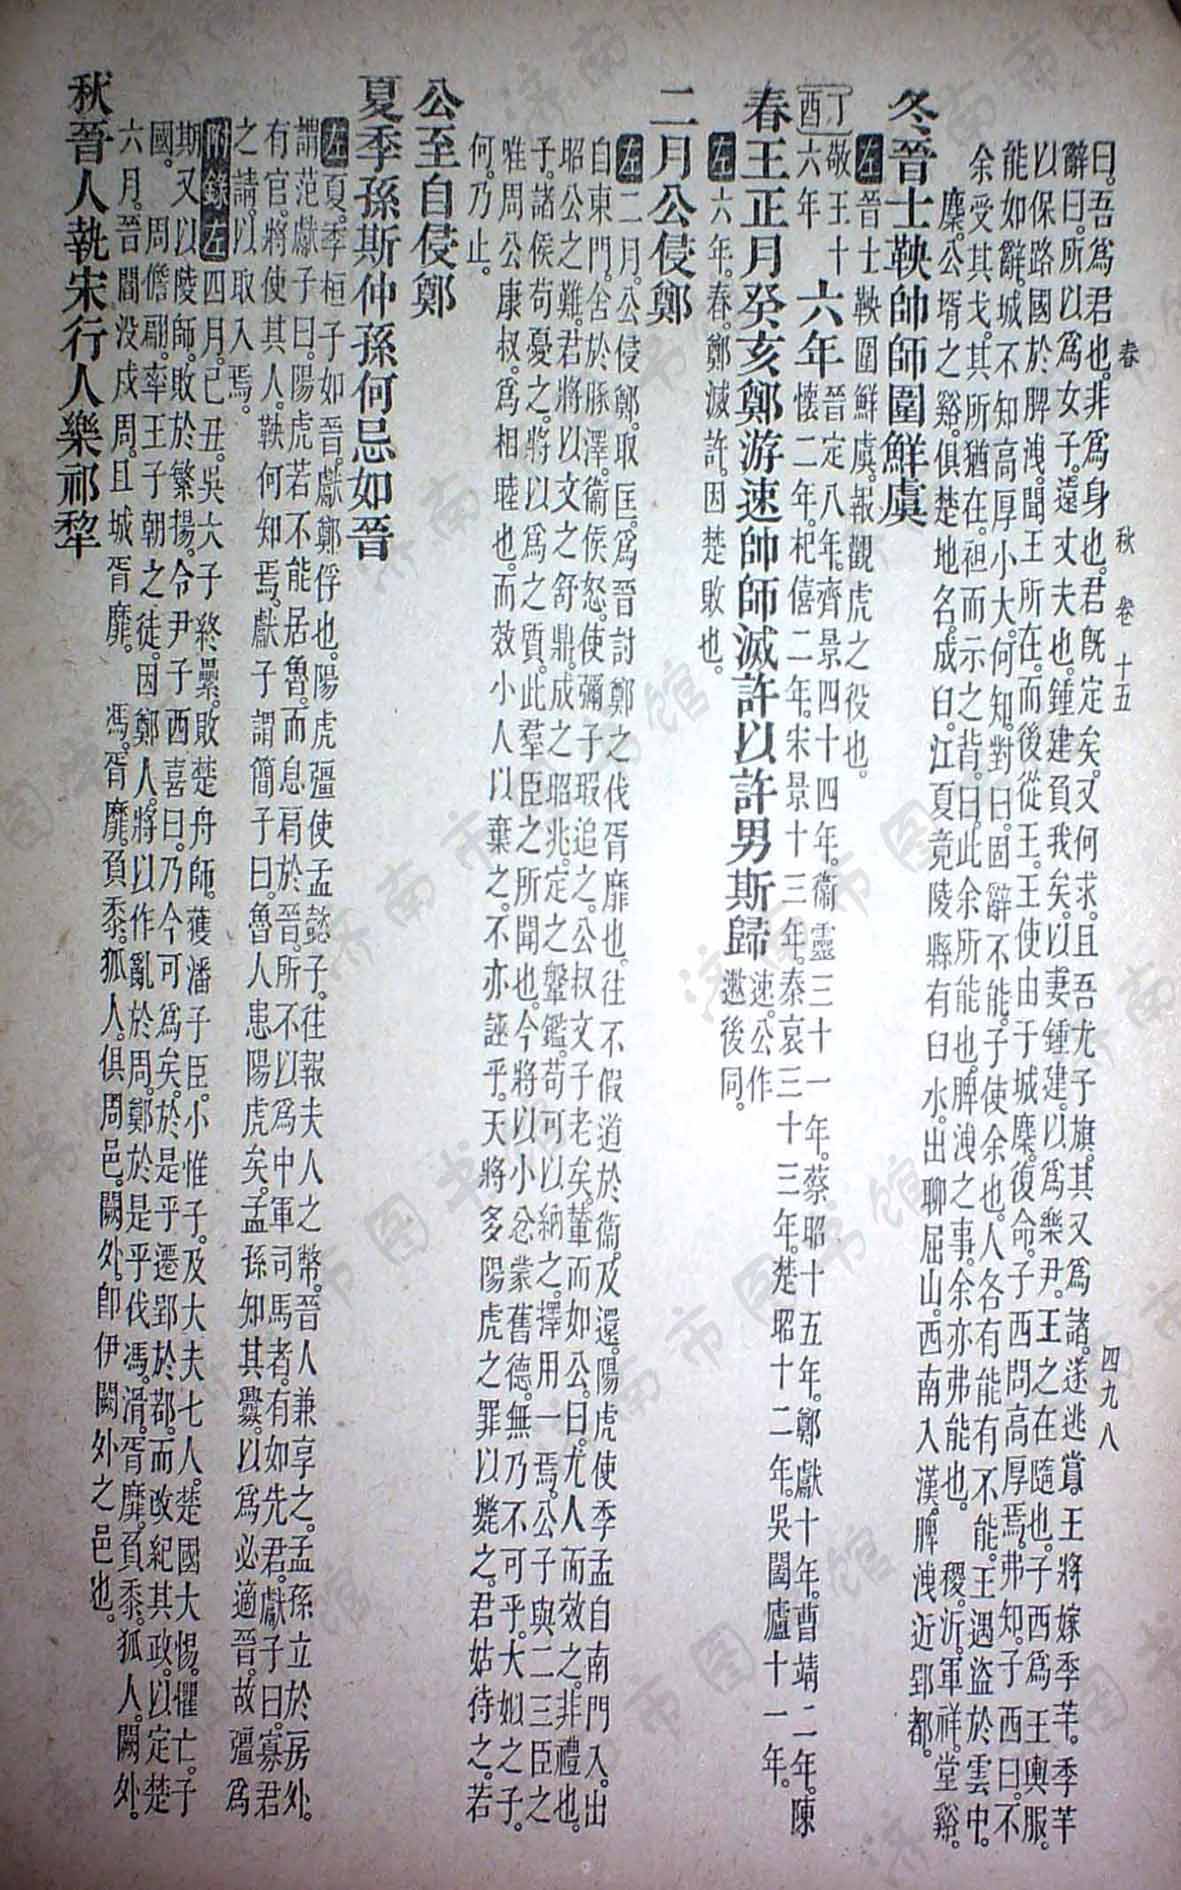 春秋 卷十五 四九八
曰。吾爲君也。非爲身也。君旣定矣。又何求。且吾尤子旗。其又爲諸。遂逃賞。王將嫁季芊。季芊
辭曰。所以爲女子。遠丈夫也。鍾建負我矣。以妻鍾建。以爲樂尹。王之在隨也。子西爲王輿服。
以保路國於脾洩。聞王所在。而後從王。王使由于城麇。復命。子西問高厚焉。弗知。子西曰。不
能如辭。城不知高厚小大。何知。對曰。固辭不能。子使余也。人各有能有不能。王遇盜於雲中。
余受其戈。其所猶在。袒而示之背。曰。此余所能也。脾洩之事。余亦弗能也。 稷。沂。軍祥。堂谿。
麋。公壻之谿。俱楚地名。成臼。江夏竟陵縣有臼水。出聊屈山。西南入漢。脾洩近郢都。
冬晉士鞅帥師圍鮮虞
左晉士鞅圍鮮虞。報觀虎之役也。
丁酉 敬王十六年 六年 晉定八年。齊景四十四年。衞靈三十一年。蔡昭十五年。鄭獻十年。曹靖二年。陳
懷二年。杞僖二年。宋景十三年。秦哀三十三年。楚昭十二年。吳闔廬十一年。
春王正月癸亥鄭游速帥師滅許以許男斯歸 速。公作遬後同。
左六年。春。鄭滅許。因楚敗也。
二月公侵鄭
左二月。公侵鄭。取匡。爲晉討鄭之伐胥靡也。往不假道於衞。及還。陽虎使季孟自南門入。出
自東門。舍於豚澤。衞侯怒。使彌子瑕追之。公叔文子老矣。輦而如公。曰。尤人而效之。非禮也。
昭公之難。君將以文之舒鼎。成之昭兆。定之鞶鑑。苟可以納之。擇用一焉。公子與二三臣之
子。諸侯苟憂之。將以爲之質。此羣臣之所聞也。今將以小忿蒙舊德。無乃不可乎。大姒之子。
唯周公康叔。爲相睦也。而效小人以棄之。不亦誣乎。天將多陽虎之罪以斃之。君姑待之。若
何。乃止。
公至自侵鄭
夏季孫斯仲孫何忌如晉
左夏。季桓子如晉。獻鄭俘也。陽虎彊使孟懿子。往報夫人之幣。晉人兼享之。孟孫立於房外。
謂范獻子曰。陽虎若不能居魯。而息肩於晉。所不以爲中軍司馬者。有如先君。獻子曰。寡君
有官。將使其人。鞅何知焉。獻子謂簡子曰。魯人患陽虎矣。孟孫知其釁。以爲必適晉。故彊爲
之請。以取入焉。
附錄左四月。己丑。吳大子終纍。敗楚舟師。獲潘子臣。小惟子。及大夫七人。楚國大惕。懼亡。子
期又以陵師。敗於繁揚。令尹子西喜曰。乃今可爲矣。於是乎遷郢於鄀。而改紀其政。以定楚
國。 周儋翩。率王子朝之徒。因鄭人。將以作亂於周。鄭於是乎伐馮。滑。胥靡。負黍。狐人。闕外。
六月。晉閻沒戍周。且城胥靡。 馮。胥靡。負黍。狐人。俱周邑。闕外。卽伊闕外之邑也。
秋晉人執宋行人樂祁犂